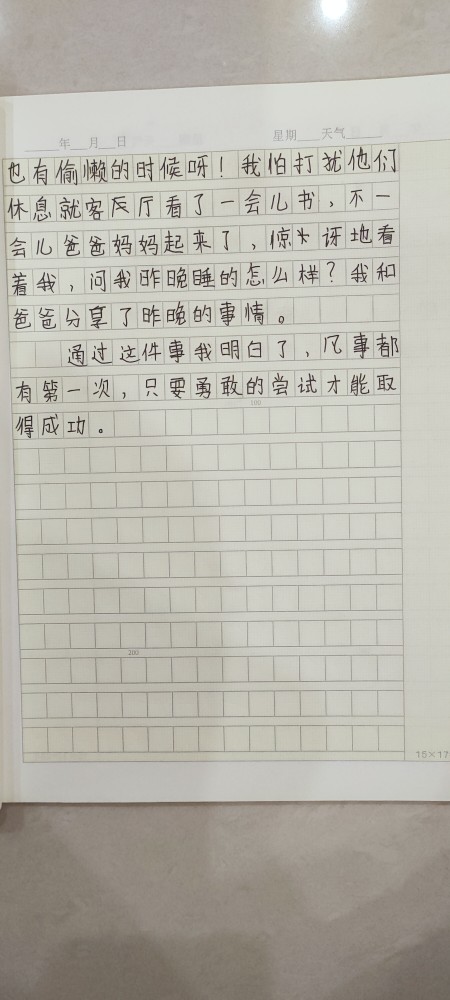 年 月 日 星期 天气
也有偷懒的时候呀！我怕打扰他们
休息就客厅看了一会儿书，不一
会儿爸爸妈妈起来了，惊讶地看
着我，问我昨晚睡的怎么样？我和
爸爸分享了昨晚的事情。
通过这件事我明白了，凡事都
有第一次，只要勇敢的尝试才能取
得成功。
100
200
15×17